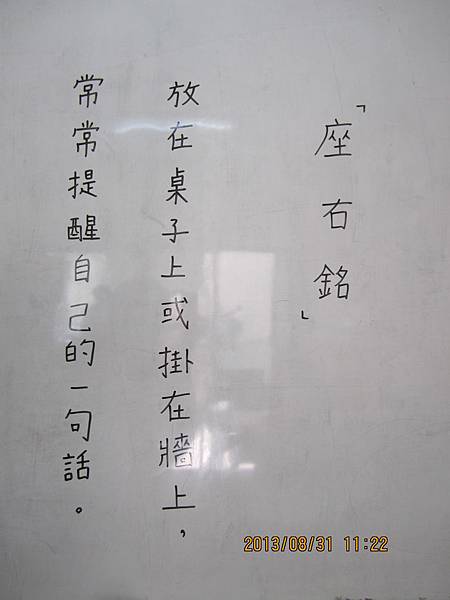 「座右銘」
放在桌子上或掛在牆上，
常常提醒自己的一句話。
2013/08/31 11:22